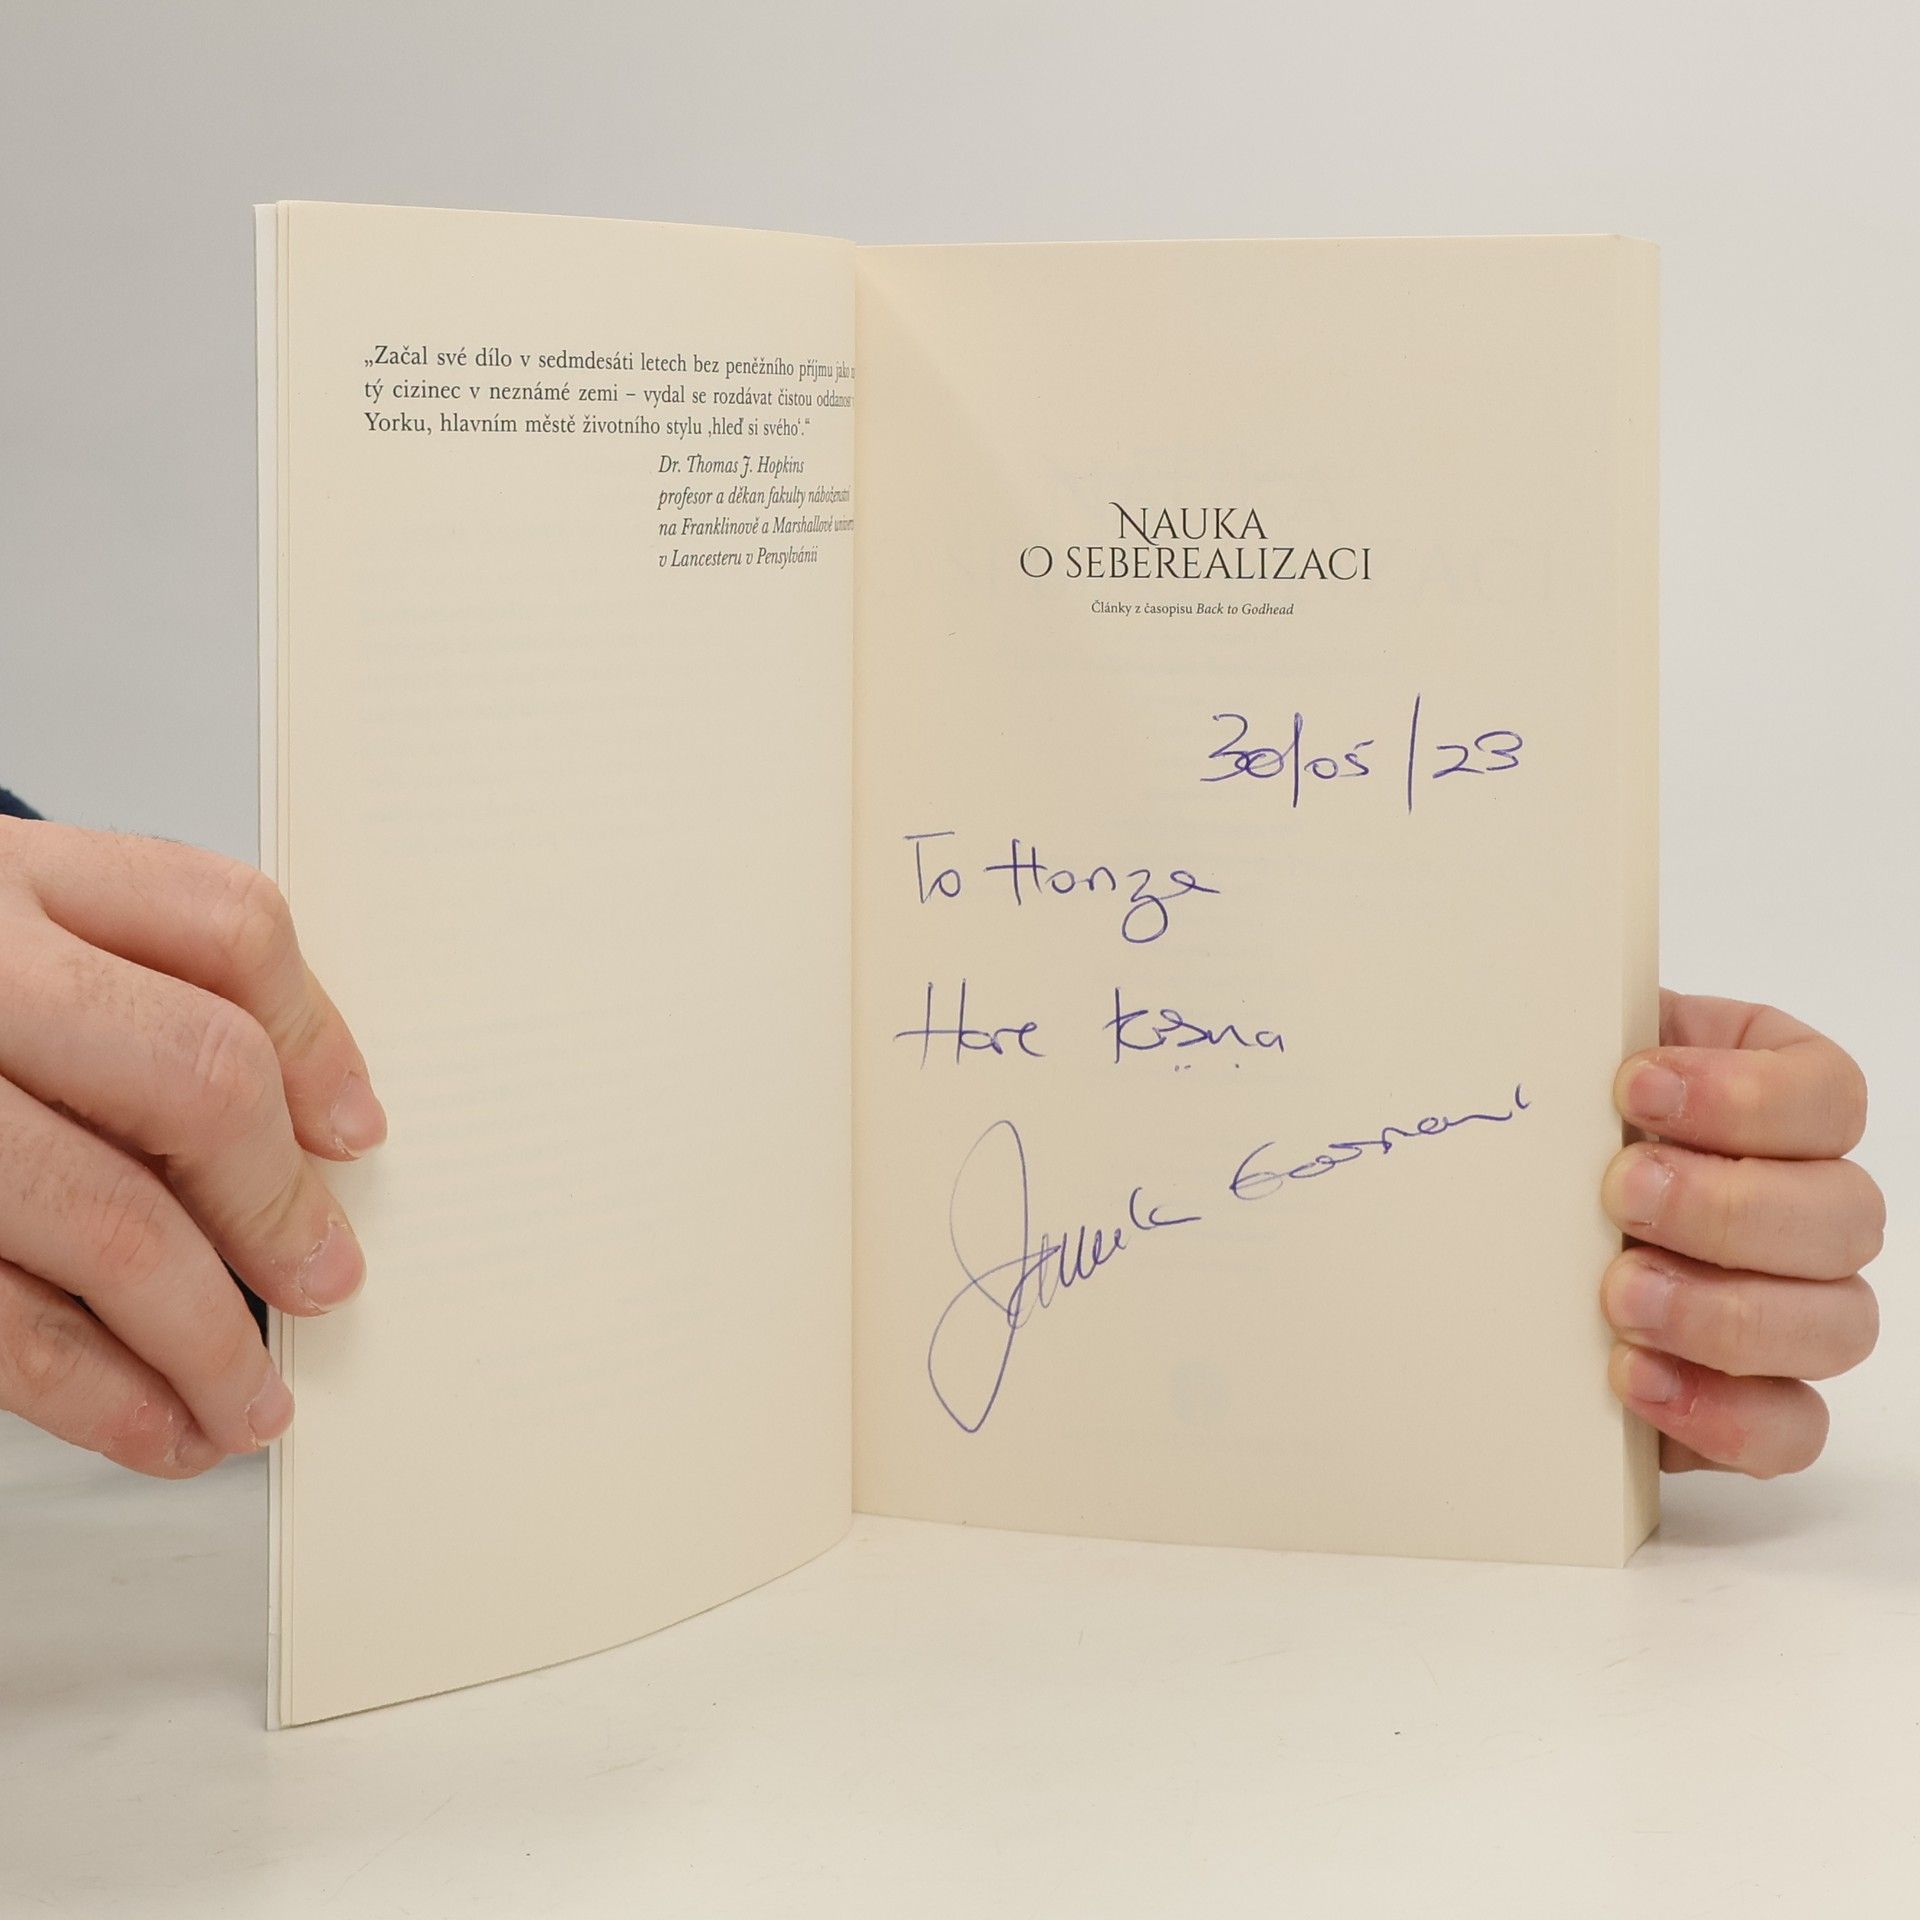 „Začal své dílo v sedmdesáti letech bez peněžního příjmu jako
tý cizinec v neznámé zemi – vydal se rozdávat čistou oddanost
Yorku, hlavním městě životního stylu ‚hleď si svého‘.“
Dr. Thomas J. Hopkins
profesor a děkan fakulty náboženství
na Franklinově a Marshallově
v Lancesteru v Pensylvánii
NAUKA
O SEBEREALIZACI
Články z časopisu Back to Godhead
30/05/23
To Honza
Hare Kṛṣṇa